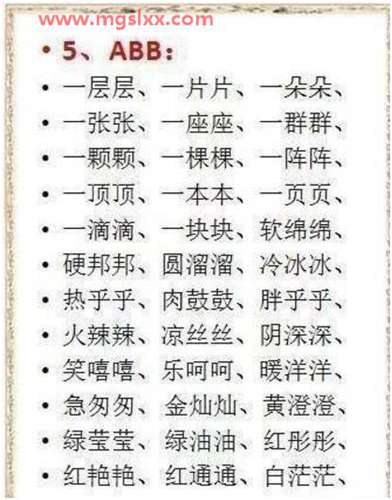 www.mgslxx.com
• 5、ABB：
• 一层层、一片片、一朵朵、
• 一张张、一座座、一群群、
• 一颗颗、一棵棵、一阵阵、
• 一顶顶、一本本、一页页、
• 一滴滴、一块块、软绵绵、
• 硬邦邦、圆溜溜、冷冰冰、
• 热乎乎、肉鼓鼓、胖乎乎、
• 火辣辣、凉丝丝、阴深深、
• 笑嘻嘻、乐呵呵、暖洋洋、
• 急匆匆、金灿灿、黄澄澄、
• 绿莹莹、绿油油、红彤彤、
• 红艳艳、红通通、白茫茫、